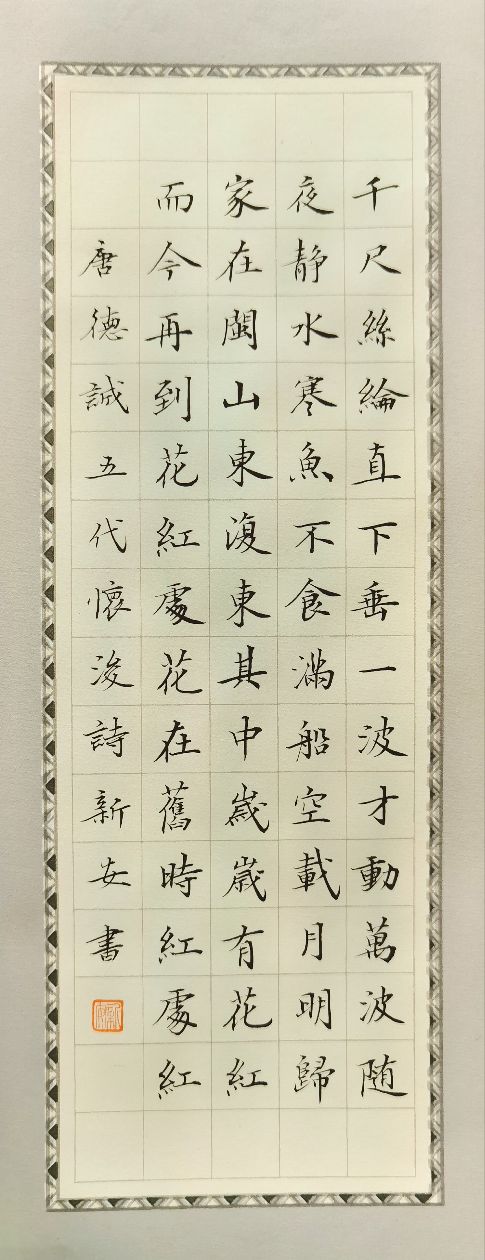 千尺絲綸直下垂一波才動萬波随
夜静水寒魚不食滿船空載月明歸
家在閩山東復東其中歲歲有花紅
而今再到花紅處花在舊時紅處紅
唐德誠五代懷浚詩新安書